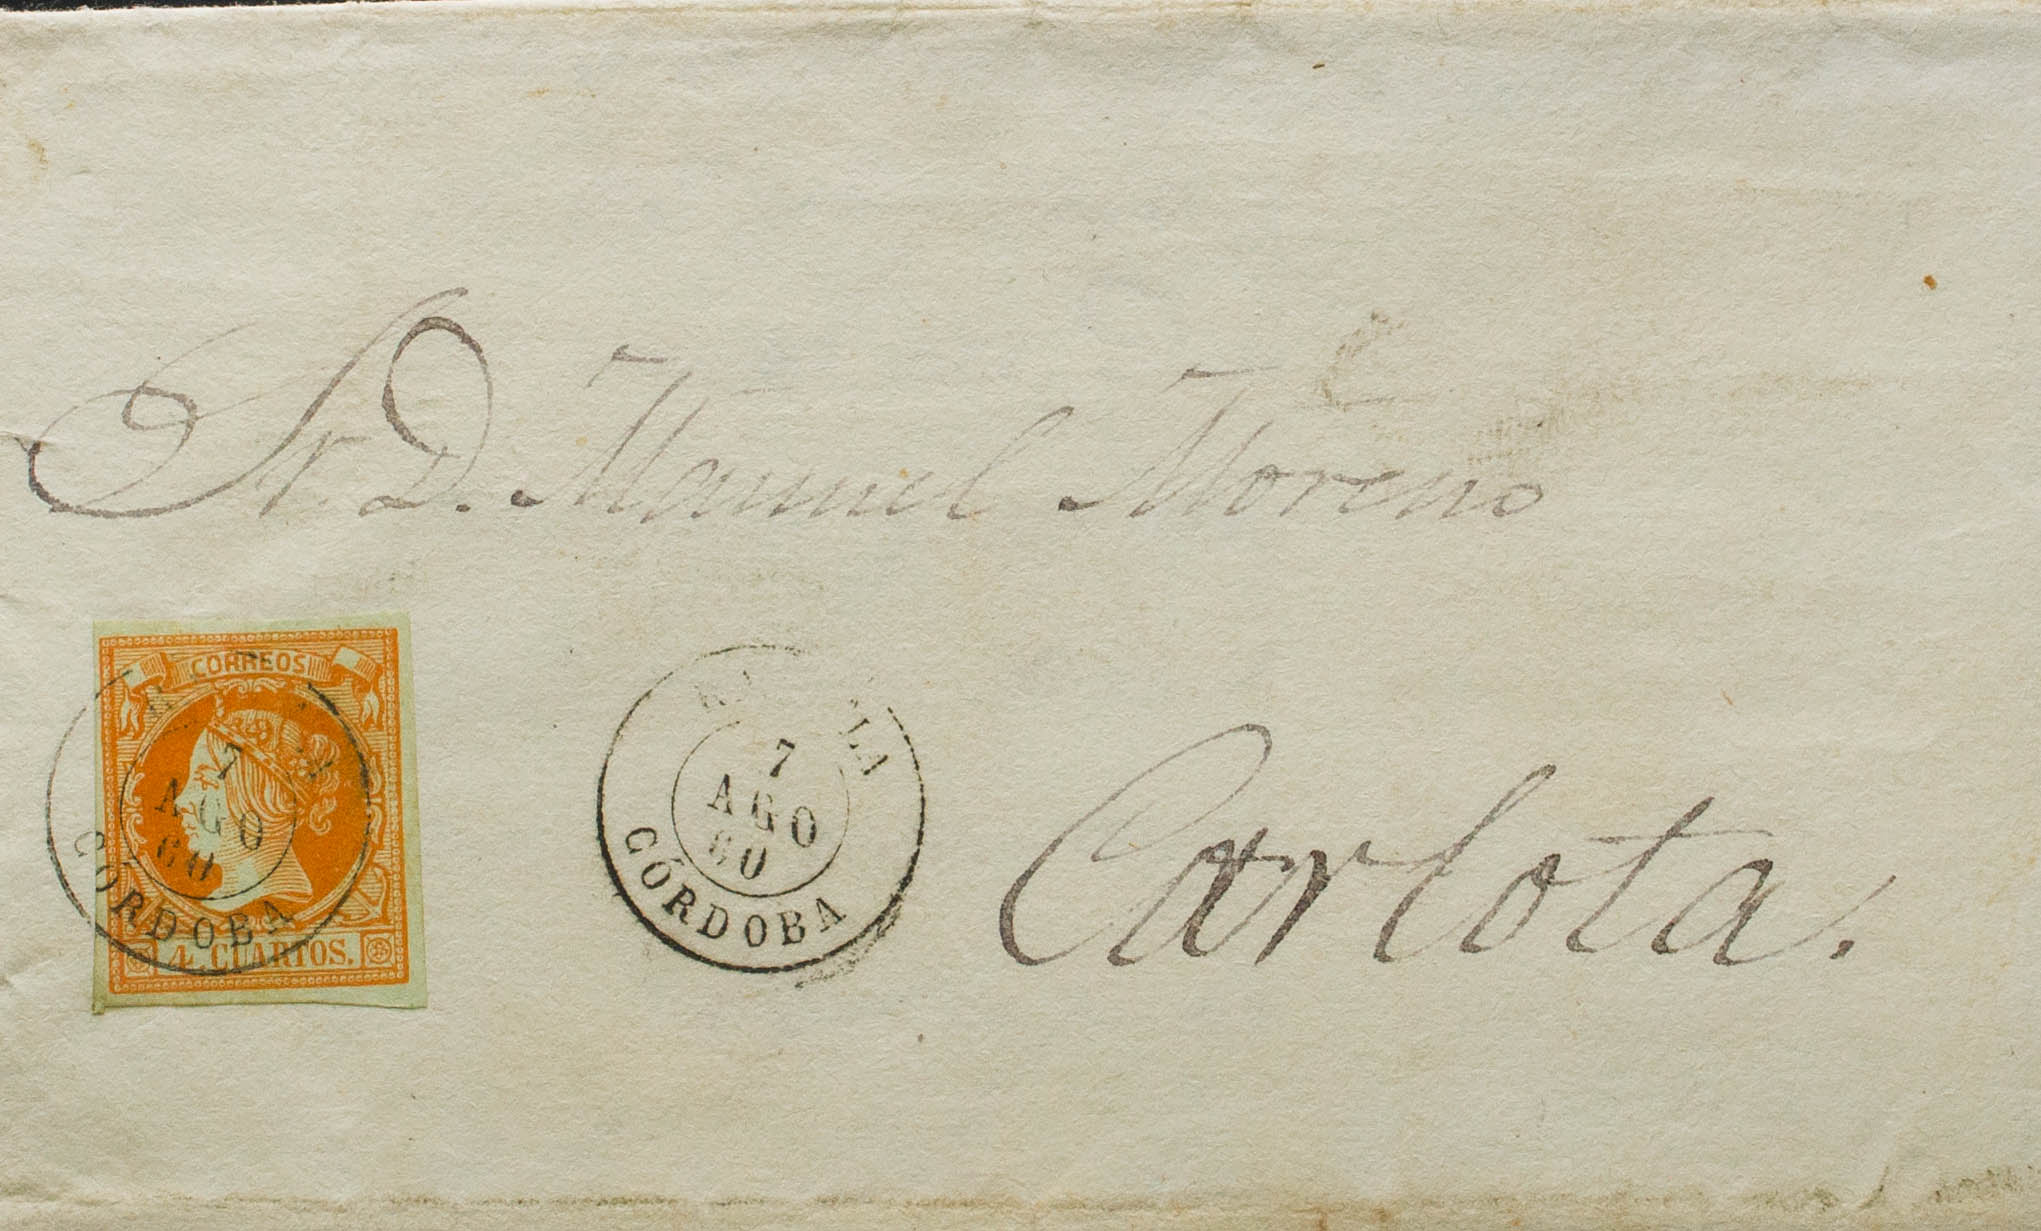 Sr. D. Manuel Moreno
CORREOS
7
AGO
60
CÓRDOBA
4 CUARTOS.
7
AGO
60
CÓRDOBA
Carlota.